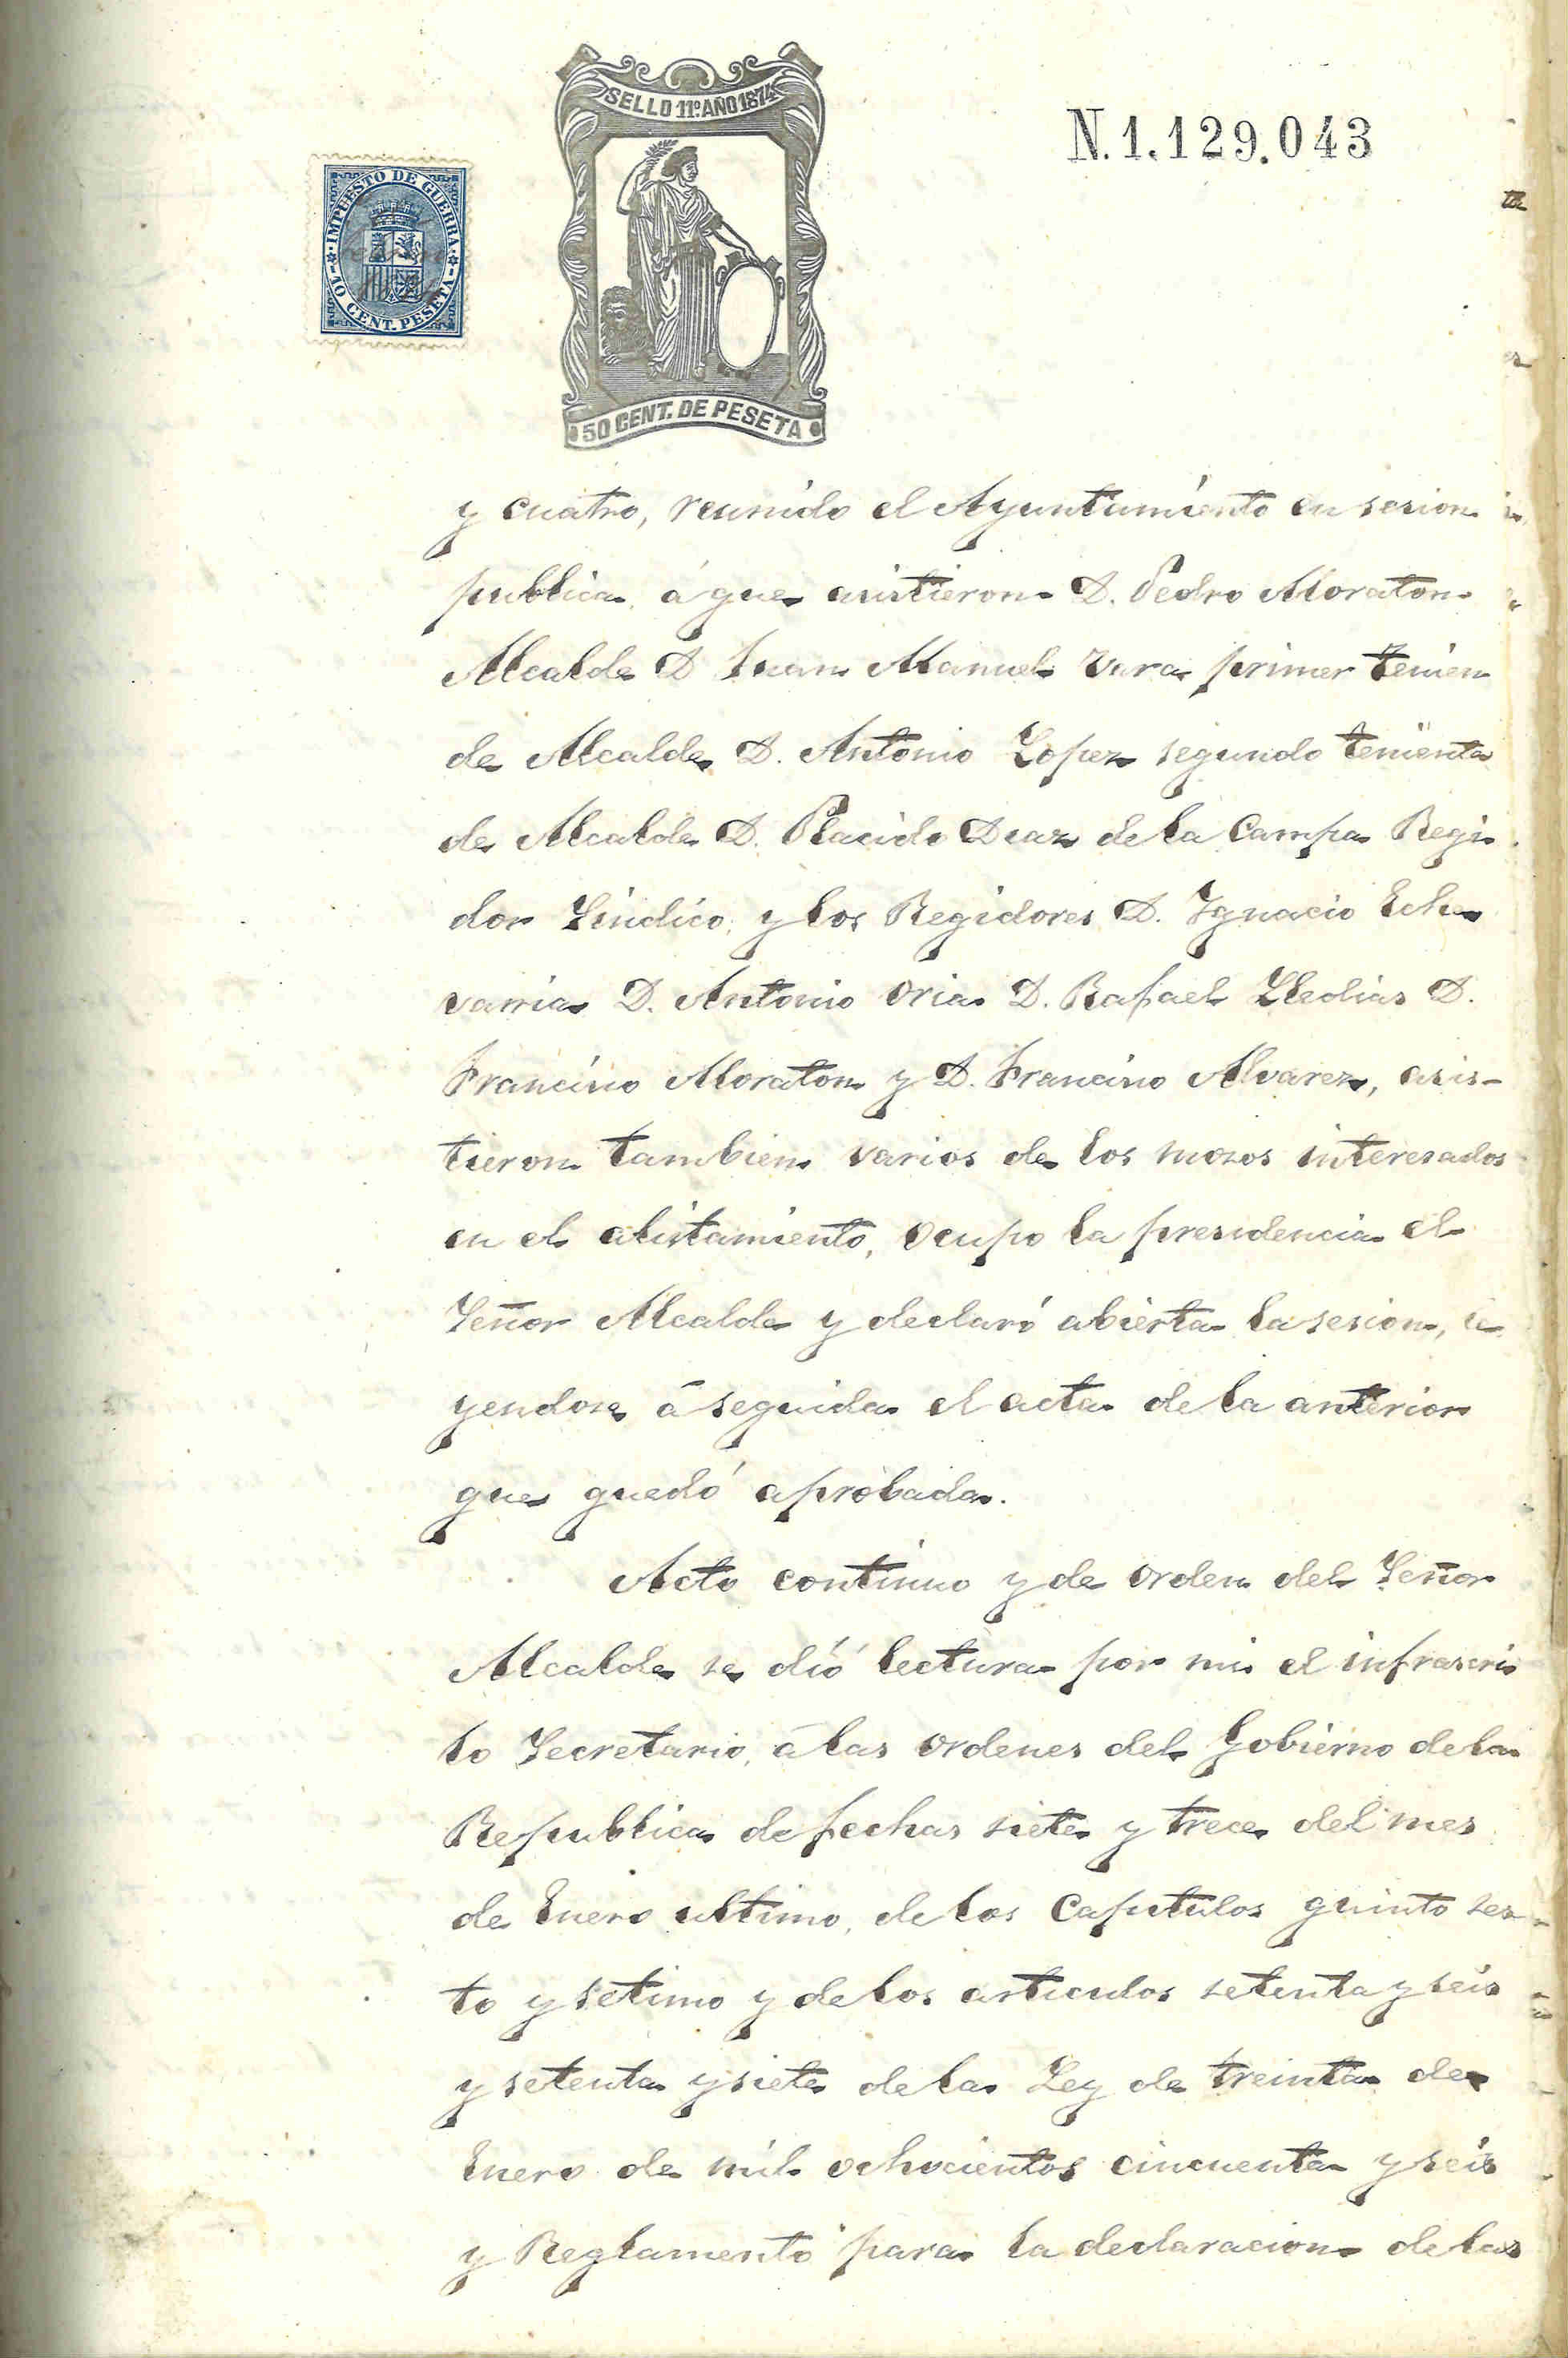 SELLO 11º AÑO 1874
N. 1.129.043
IMPUESTO DE GUERRA
10 CENT. PESETA
50 CENT. DE PESETA
y cuatro, reunido el Ayuntamiento en sesion
publica á que asistieron D. Pedro Moraton
Alcalde D Juan Manuel Vara primer tenien
de Alcalde D. Antonio Lopez segundo teniente
de Alcalde D. Placido Diaz de la Campa Regi
dor Sindico, y los Regidores D. Ygnacio Eche
varria D. Antonio Oria D. Rafael Lledias D.
Francisco Moraton y D. Francisco Alvarez, asis-
tieron tambien varios de los mozos interesados
en el alistamiento, ocupo la presidencia el
Señor Alcalde y declaró abierta la sesion, le
yendose á seguida el acta de la anterior
que quedó aprobada.
Acto continuo y de orden del Señor
Alcalde se dió lectura por mi el infrascri
to Secretario, á las ordenes del Gobierno de la
Republica de fechas siete y trece del mes
de Enero ultimo, de los Capitulos quinto ses
to y setimo y de los articulos setenta y seis
y setenta y siete de la Ley de treinta de
Enero de mil ochocientos cincuenta y seis
y Reglamento para la declaracion de las